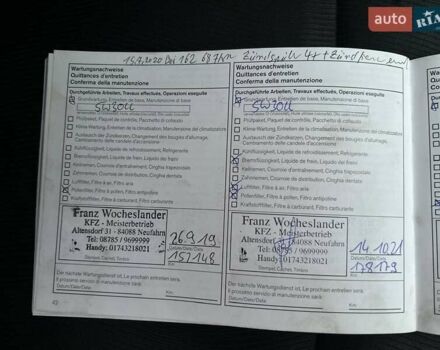 auto
RIA
15.7.2020 Bei 162 687km Zündspule 4x + Zündkerzen
Wartungsnachweise
Quittances d'entretien
Conferma della manutenzione
Durchgeführte Arbeiten, Travaux effectués, Operazioni eseguite
Grundwartung, Entretien de base, Manutenzione di base
5W30LL
Pollpaket, Paquet de contrôle, Pacchetto di controllo
Klima Wartung, Entretien de la climatisation, Manutenzione del climatizzatore
Austausch der Zündkerzen, Changement des bougies d'allumage,
Cambiamento delle candele d'accensione
Kühlflüssigkeit, Liquide de refroidissement, Refrigerante
Bremsflüssigkeit, Liquide de frein, Liquido dei freni
Keilriemen, Courroie d'entraînement, Cinghia trapezoidale
Zahnriemen, Courroie de distribution, Cinghia dentata
Luftfilter, Filtre à air, Filtro aria
Pollenfilter, Filtre à pollen, Filtro antipolline
Kraftstofffilter, Filtre à carburant, Filtro carburante
Franz Wocheslander
KFZ - Meisterbetrieb
Altensdorf 31 - 84088 Neufahrn
Tel: 08785 / 9699999
Handy: 01743218021
Stempel, Cachet, Timbro
26.9.19
Datum/Date/Data
152148
Km
Der nächste Wartungsdienst ist, Le prochain entretien sera,
Il prossimo servizio di manutenzione sarà:
Datum/Date/Data
Km
42
Wartungsnachweise
Quittances d'entretien
Conferma della manutenzione
Durchgeführte Arbeiten, Travaux effectués, Operazioni eseguite
Grundwartung, Entretien de base, Manutenzione di base
5W30LL
Pollpaket, Paquet de contrôle, Pacchetto di controllo
Klima Wartung, Entretien de la climatisation, Manutenzione del climatizzatore
Austausch der Zündkerzen, Changement des bougies d'allumage,
Cambiamento delle candele d'accensione
Kühlflüssigkeit, Liquide de refroidissement, Refrigerante
Bremsflüssigkeit, Liquide de frein, Liquido dei freni
Keilriemen, Courroie d'entraînement, Cinghia trapezoidale
Zahnriemen, Courroie de distribution, Cinghia dentata
Luftfilter, Filtre à air, Filtro aria
Pollenfilter, Filtre à pollen, Filtro antipolline
Kraftstofffilter, Filtre à carburant, Filtro carburante
Franz Wocheslander
KFZ - Meisterbetrieb
Altensdorf 84088 Neufahrn
Tel: 08785 / 9699999
Handy: 01743218021
Stempel, Cachet, Timbro
14.10.21
Datum/Date/Data
178179
Km
Der nächste Wartungsdienst ist, Le prochain entretien sera,
Il prossimo servizio di manutenzione sarà:
Datum/Date/Data
Km